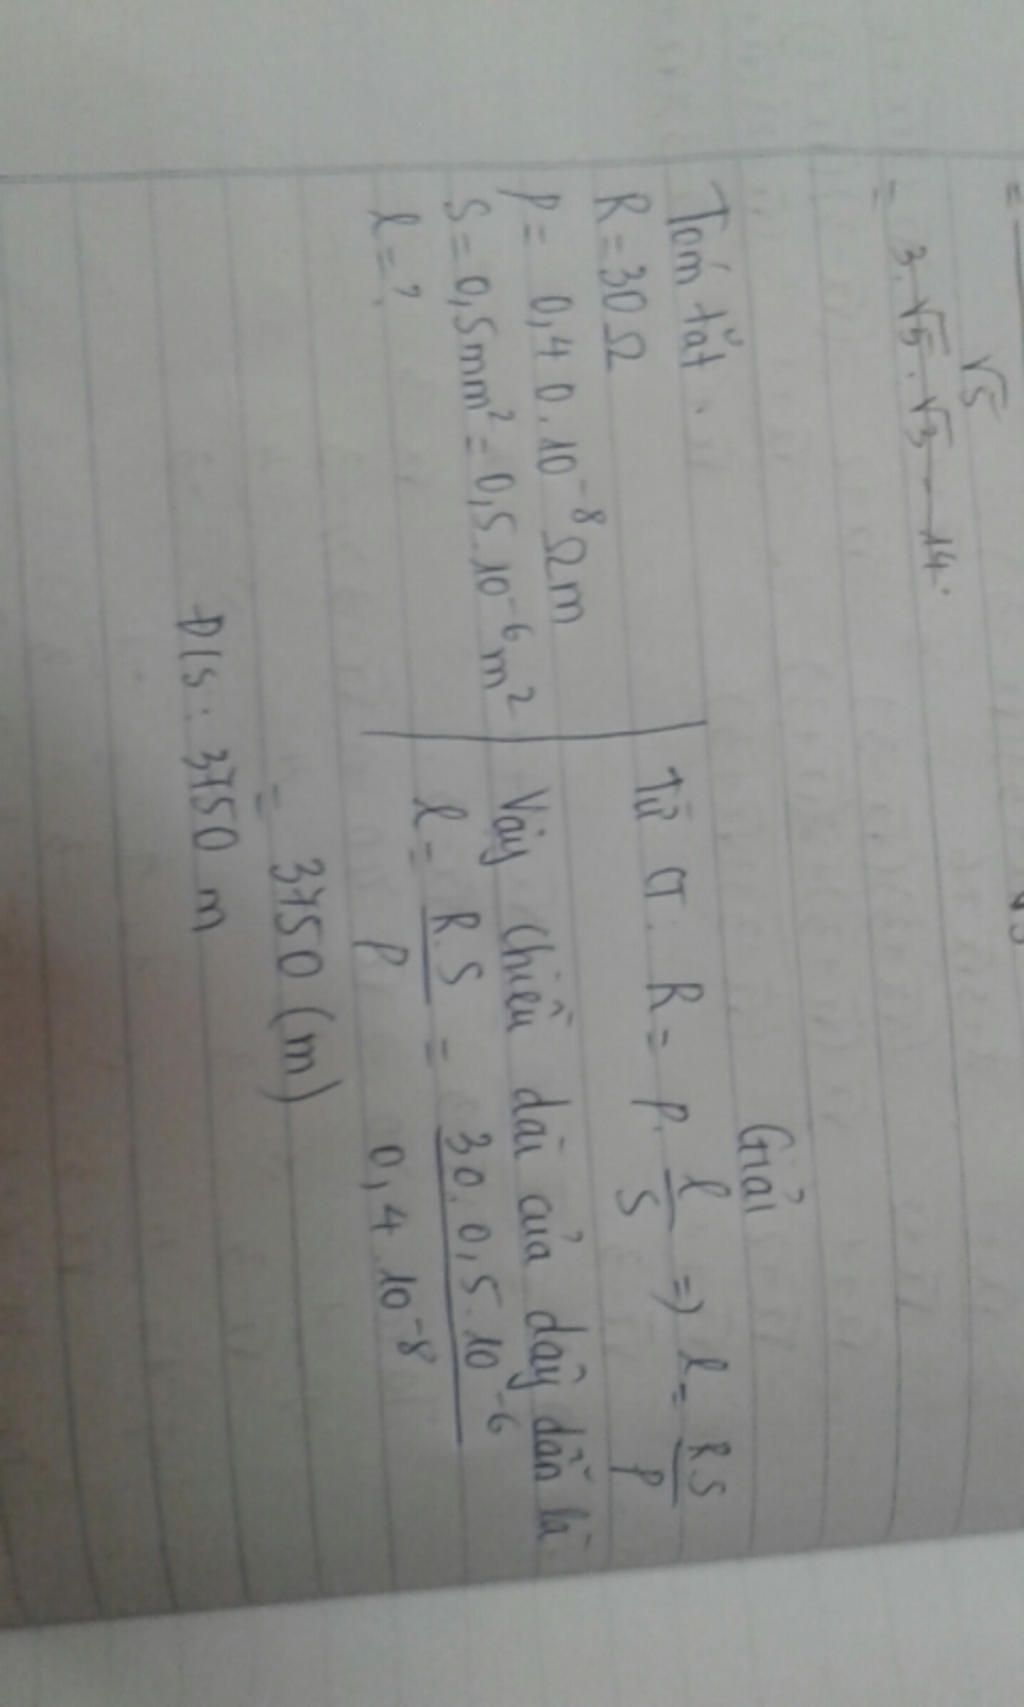 =
√5
= 3.√5.√3 - 14.
Tóm tắt.
R = 30Ω
ρ = 0,40.10⁻⁸ Ωm
S = 0,5mm² = 0,5.10⁻⁶m²
l = ?
Giải
Từ CT: R = ρ. l/S => l = R.S/ρ
Vậy chiều dài của dây dẫn là
l = R.S/ρ = 30.0,5.10⁻⁶/0,4.10⁻⁸
= 3750 (m)
Đ/s: 3750 m